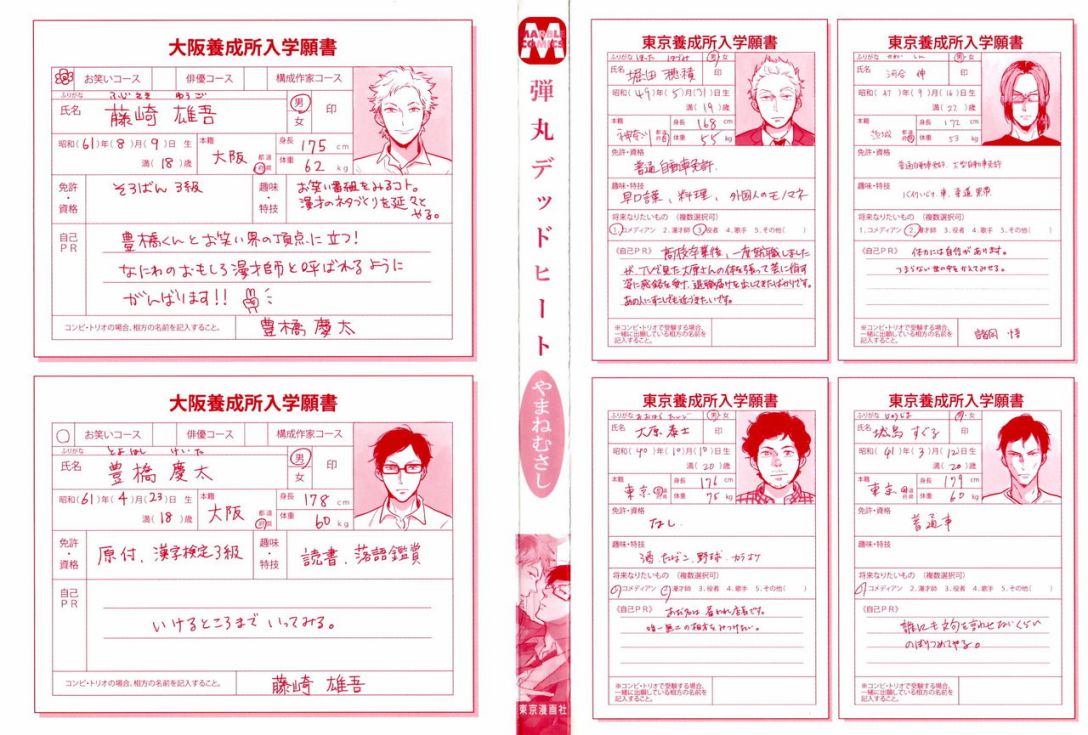 大阪養成所入学願書
お笑いコース 俳優コース 構成作家コース
ふりがな ふじさき ゆうご
氏名 藤崎 雄吾 男 女 印
昭和(61)年(8)月(9)日 生
満(18)歳
本籍 大阪 都道府県
身長 175 cm
体重 62 kg
免許・資格 そろばん3級
趣味・特技 お笑い番組をみるコト。
漫才のネタづくりを延々と
やる。
自己PR 豊橋くんとお笑い界の頂点に立つ!
なにわのおもしろ漫才師と呼ばれるように
がんばります!!
コンビ・トリオの場合、相方の名前を記入すること。 豊橋 慶太
大阪養成所入学願書
お笑いコース 俳優コース 構成作家コース
ふりがな とよはし けいた
氏名 豊橋 慶太 男 女 印
昭和(61)年(4)月(23)日 生
満(18)歳
本籍 大阪 都道府県
身長 178 cm
体重 60 kg
免許・資格 原付、漢字検定3級
趣味・特技 読書、落語鑑賞
自己PR
いけるところまで いってみる。
コンビ・トリオの場合、相方の名前を記入すること。 藤崎 雄吾
MARBLE COMICS
弾丸デッドヒート
やまねむさし
東京漫画社
東京養成所入学願書
ふりがな ほった ほづみ 男・女
氏名 堀田 穂積 印
昭和(49)年(5)月(31)日生
満(19)歳
本籍 神奈川 都道府県
身長 168 cm
体重 55 kg
免許・資格
普通自動車免許
趣味・特技
早口言葉、料理、外国人のモノマネ
将来なりたいもの (複数選択可)
1.コメディアン 2.漫才師 3.役者 4.歌手 5.その他( )
《自己PR》 高校卒業後、一度就職しました
が、TVで見た大原さんの体を張って芸に指す
姿に感銘を受け、退職届けを出してきたばかりです。
あの人にすこしでも近づきたいです。
※コンビ・トリオで受験する場合、
一緒に出願している相方の名前を
記入すること。
東京養成所入学願書
ふりがな かわい しん 男・女
氏名 河合 伸 印
昭和(47)年(9)月(16)日生
満(22)歳
本籍 都道府県
身長 172 cm
体重 53 kg
免許・資格
普通自動車免許、大型自動車免許
趣味・特技
バイトいじり、車、柔道黒帯
将来なりたいもの (複数選択可)
1.コメディアン 2.漫才師 3.役者 4.歌手 5.その他( )
《自己PR》 体力には自信があります。
つまらない世の中をかえてみせる。
※コンビ・トリオで受験する場合、
一緒に出願している相方の名前を
記入すること。 諸岡 悟
東京養成所入学願書
ふりがな おおはら たいし 男・女
氏名 大原 泰士 印
昭和(40)年(10)月(10)日生
満(20)歳
本籍 東京 都道府県
身長 176 cm
体重 75 kg
免許・資格
なし
趣味・特技
酒、たばこ、野球、カラオケ
将来なりたいもの (複数選択可)
1.コメディアン 2.漫才師 3.役者 4.歌手 5.その他( )
《自己PR》 あだ名は 雇われ店長です。
唯一無二の相方をみつけたい。
※コンビ・トリオで受験する場合、
一緒に出願している相方の名前を
記入すること。
東京養成所入学願書
ふりがな じょうじま 男・女
氏名 城島 すぐる 印
昭和(41)年(3)月(12)日生
満(20)歳
本籍 東京 都道府県
身長 179 cm
体重 60 kg
免許・資格
普通車
趣味・特技
将来なりたいもの (複数選択可)
1.コメディアン 2.漫才師 3.役者 4.歌手 5.その他( )
《自己PR》
誰にも文句を言わせないくらい
のぼりつめてやる。
※コンビ・トリオで受験する場合、
一緒に出願している相方の名前を
記入すること。